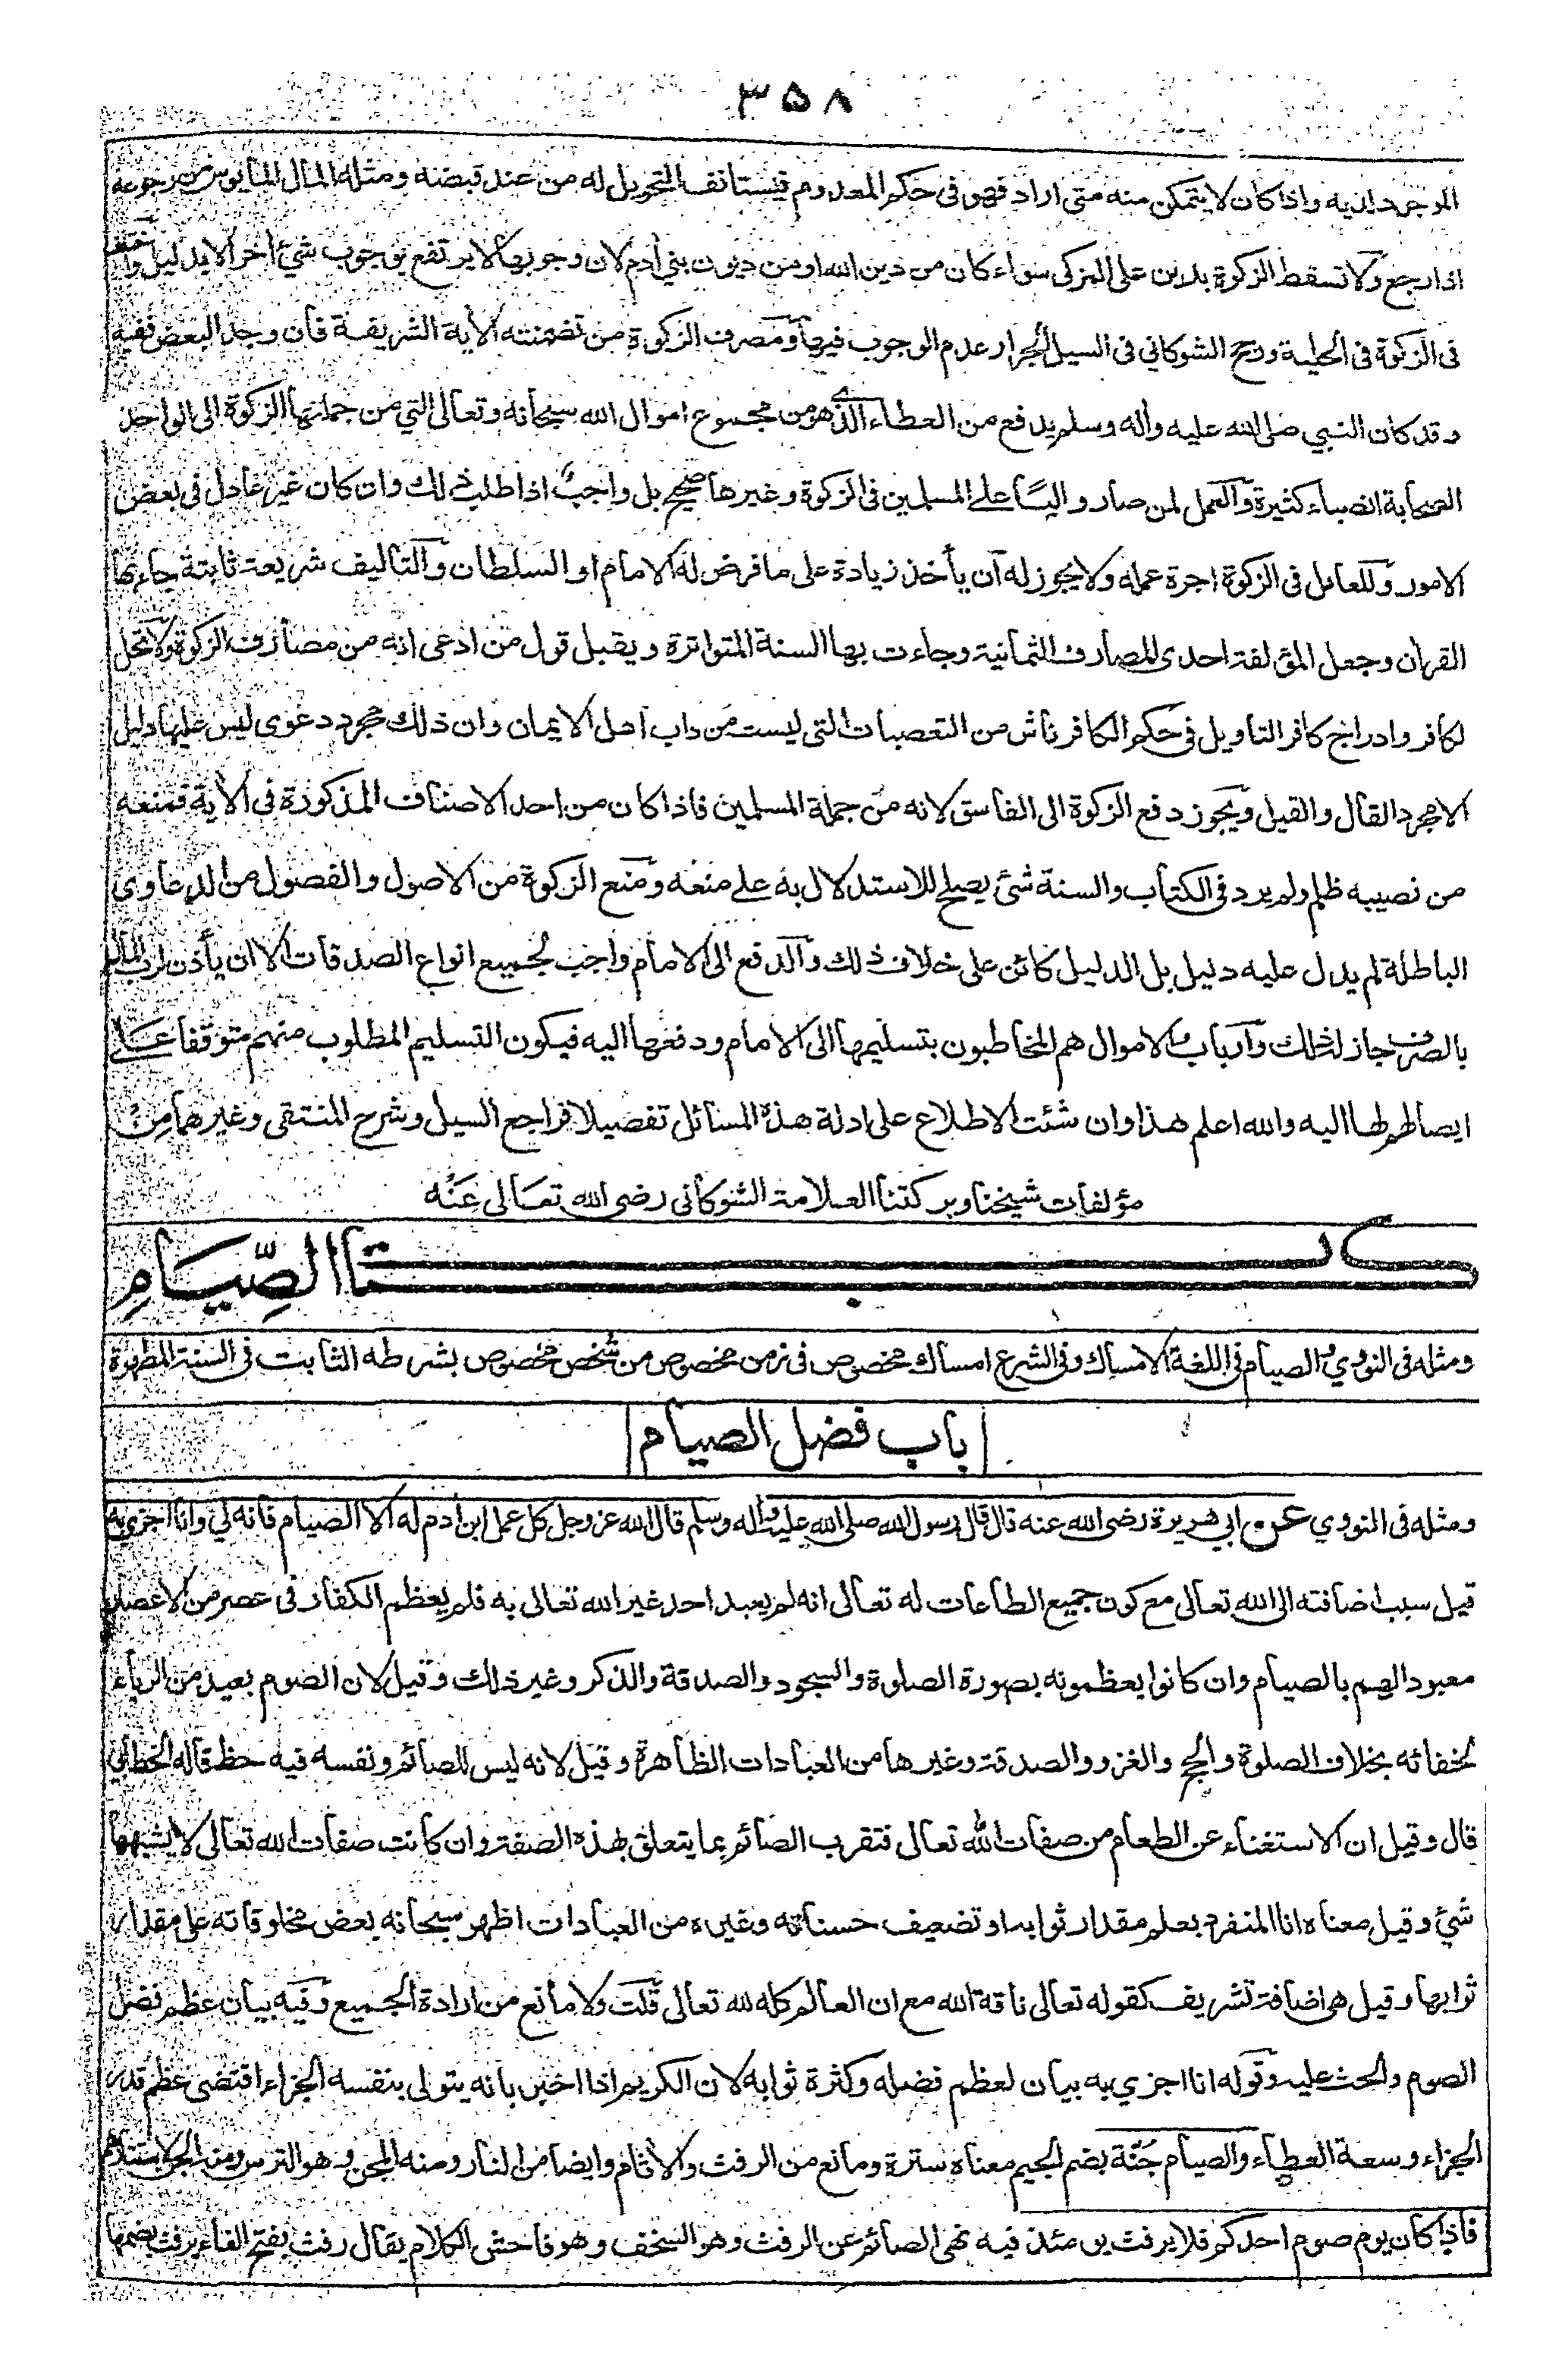 ٣٥٨
الموجود لديه واذا كان لا يتمكن منه متى اراد فهو فى حكم المعدوم فيستانف التحويل له من عند قبضه ومثله المال المايوس من رجوعه
اذا رجع ولا تسقط الزكوة بدين على المزكى سواء كان من دين الله او من ديون بني أدم لان وجوبها لا يرتفع بوجوب شئ أخر الا بدليل واختلف
فى الزكوة فى الحلية ورجح الشوكاني فى السيل الجرار عدم الوجوب فيها ومصرف الزكوة من تضمنته الأية الشريفة فان وجد البعض ففيه
وقد كان النبي صلى الله عليه واله وسلم يدفع من العطاء الذي هو من مجموع اموال الله سبحانه وتعالى التي من جملتها الزكوة الى الواحد
الصحابة انصباء كثيرة والعمل لمن صار واليًا على المسلمين فى الزكوة وغيرها صحيح بل واجبٌ اذا طلب ذلك وان كان غير عادل فى بعض
الامور وللعامل فى الزكوة اجرة عمله ولا يجوز له ان يأخذ زيادة على ما فرض له الامام او السلطان والتاليف شريعة ثابتة جاء بها
القران وجعل المؤلفة احدى المصارف الثمانية وجاءت بها السنة المتواترة ويقبل قول من ادعى انه من مصارف الزكوة ولا تحل
لكافر وادراج كافر التاويل فى حكم الكافر ناش من التعصبات التى ليست من داب اهل الايمان وان ذلك مجرد دعوى ليس عليها دليل
الا مجرد القال والقيل ويجوز دفع الزكوة الى الفاسق لانه من جملة المسلمين فاذا كان من احد الاصناف المذكورة فى الأية فمنعه
من نصيبه ظلم ولم يرد فى الكتاب والسنة شئ يصلح للاستدلال به على منعه ومنع الزكوة من الاصول والفصول من الدعاوى
الباطلة لم يدل عليه دليل بل الدليل كائن على خلاف ذلك والدفع الى الامام واجب لجميع انواع الصدقات الا ان يأذن لرب المال
بالصرف جاز له ذلك وارباب الاموال هم المخاطبون بتسليمها الى الامام ودفعها اليه فيكون التسليم المطلوب منهم متوقفا على
ايصالهم لها اليه والله اعلم هذا وان شئت الاطلاع على ادلة هذه المسائل تفصيلا فراجع السيل وشرح المنتقى وغيرهما مِنْ
مؤلفات شيخنا وبركتنا العلامة الشوكانى رضى الله تعالى عَنْه
كتاب الصِّيَامِ
ومثله فى النووي والصيام فى اللغة الامساك وفى الشرع امساك مخصوص فى زمن مخصوص من شخص مخصوص بشرطه الثابت فى السنة المطهرة
باب فضل الصيام
ومثله فى النووي عن ابي هريرة رضى الله عنه قال قال رسول الله صلى الله عليه واله وسلم قال الله عز وجل كل عمل ابن أدم له الا الصيام فانه لي وانا اجزي به
قيل سبب اضافته الى الله تعالى مع كون جميع الطاعات له تعالى انه لم يعبد احد غير الله تعالى به فلم يعظم الكفار فى عصر من الاعصار
معبودا لهم بالصيام وان كانوا يعظمونه بصورة الصلوة والسجود والصدقة والذكر وغير ذلك وقيل لان الصوم بعيد من الرياء
لخفائه بخلاف الصلوة والحج والغزو والصدقة وغيرها من العبادات الظاهرة وقيل لانه ليس للصائم ونفسه فيه حظ قاله الخطابي
قال وقيل ان الاستغناء عن الطعام من صفات الله تعالى فتقرب الصائم بما يتعلق بهذه الصفة وان كانت صفات الله تعالى لا يشبهها
شئ وقيل معناه انا المنفرد بعلم مقدار ثوابه او تضعيف حسناته وغيره من العبادات اظهر سبحانه بعض مخلوقاته على مقدار
ثوابها وقيل هى اضافة تشريف كقوله تعالى ناقة الله مع ان العالم كله لله تعالى قلت ولا مانع من ارادة الجميع وفيه بيان عظم فضل
الصوم والحث عليه وقوله انا اجزي به بيان لعظم فضله وكثرة ثوابه لان الكريم اذا اخبر بانه يتولى بنفسه الجزاء اقتضى عظم قدر
الجزاء وسعة العطاء والصيام جُنّة بضم الجيم معناه سترة ومانع من الرفث والأثام وايضا من النار ومنه المجن وهو الترس ومنه الجن لاستتارهم
فاذا كان يوم صوم احدكم فلا يرفث يومئذ فيه نهى الصائم عن الرفث وهو السخف وهو فاحش الكلام يقال رفث بفتح الفاء يرفث بضمها